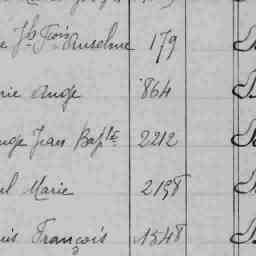 e Jh Fois Anselme 179
rie Ange 864
nge Jean Bapte 2212
ul Marie 2198
uis François 1548